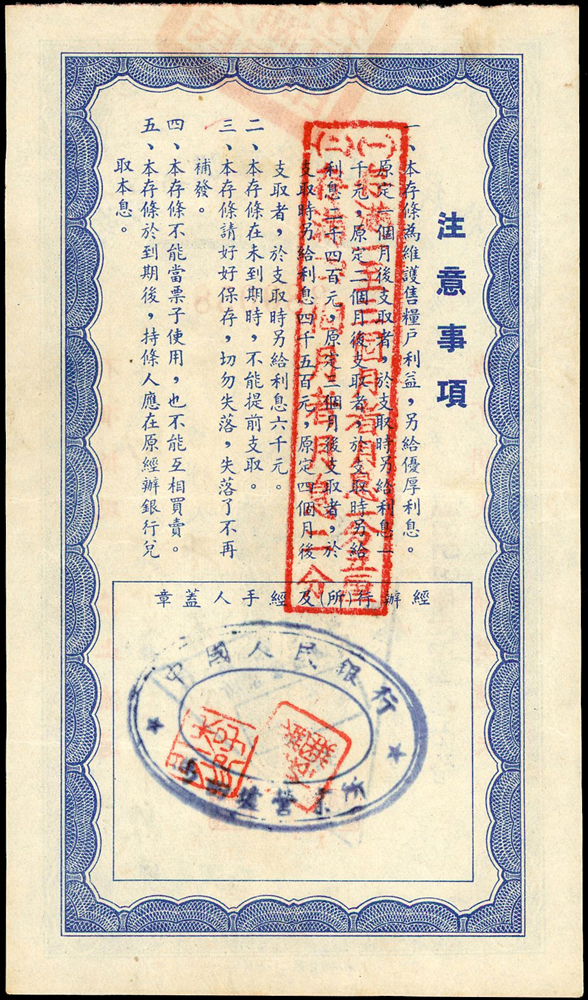 注意事項
一、本存條為維護售糧戶利益，另給優厚利息。
原定一個月後支取者，於支取時另給利息一
千元，原定二個月後支取者，於支取時另給
利息二千四百元，原定三個月後支取者，於
支取時另給利息四千五百元，原定四個月後
支取者，於支取時另給利息六千元。
二、本存條在未到期時，不能提前支取。
三、本存條請好好保存，切勿失落，失落了不再
補發。
四、本存條不能當票子使用，也不能互相買賣。
五、本存條於到期後，持條人應在原經辦銀行兌
取本息。
(一)存滿一至三個月者月息一分五厘
(二)存滿四個月者月息二分
經辦行(所)及經手人蓋章
中國人民銀行
營業所